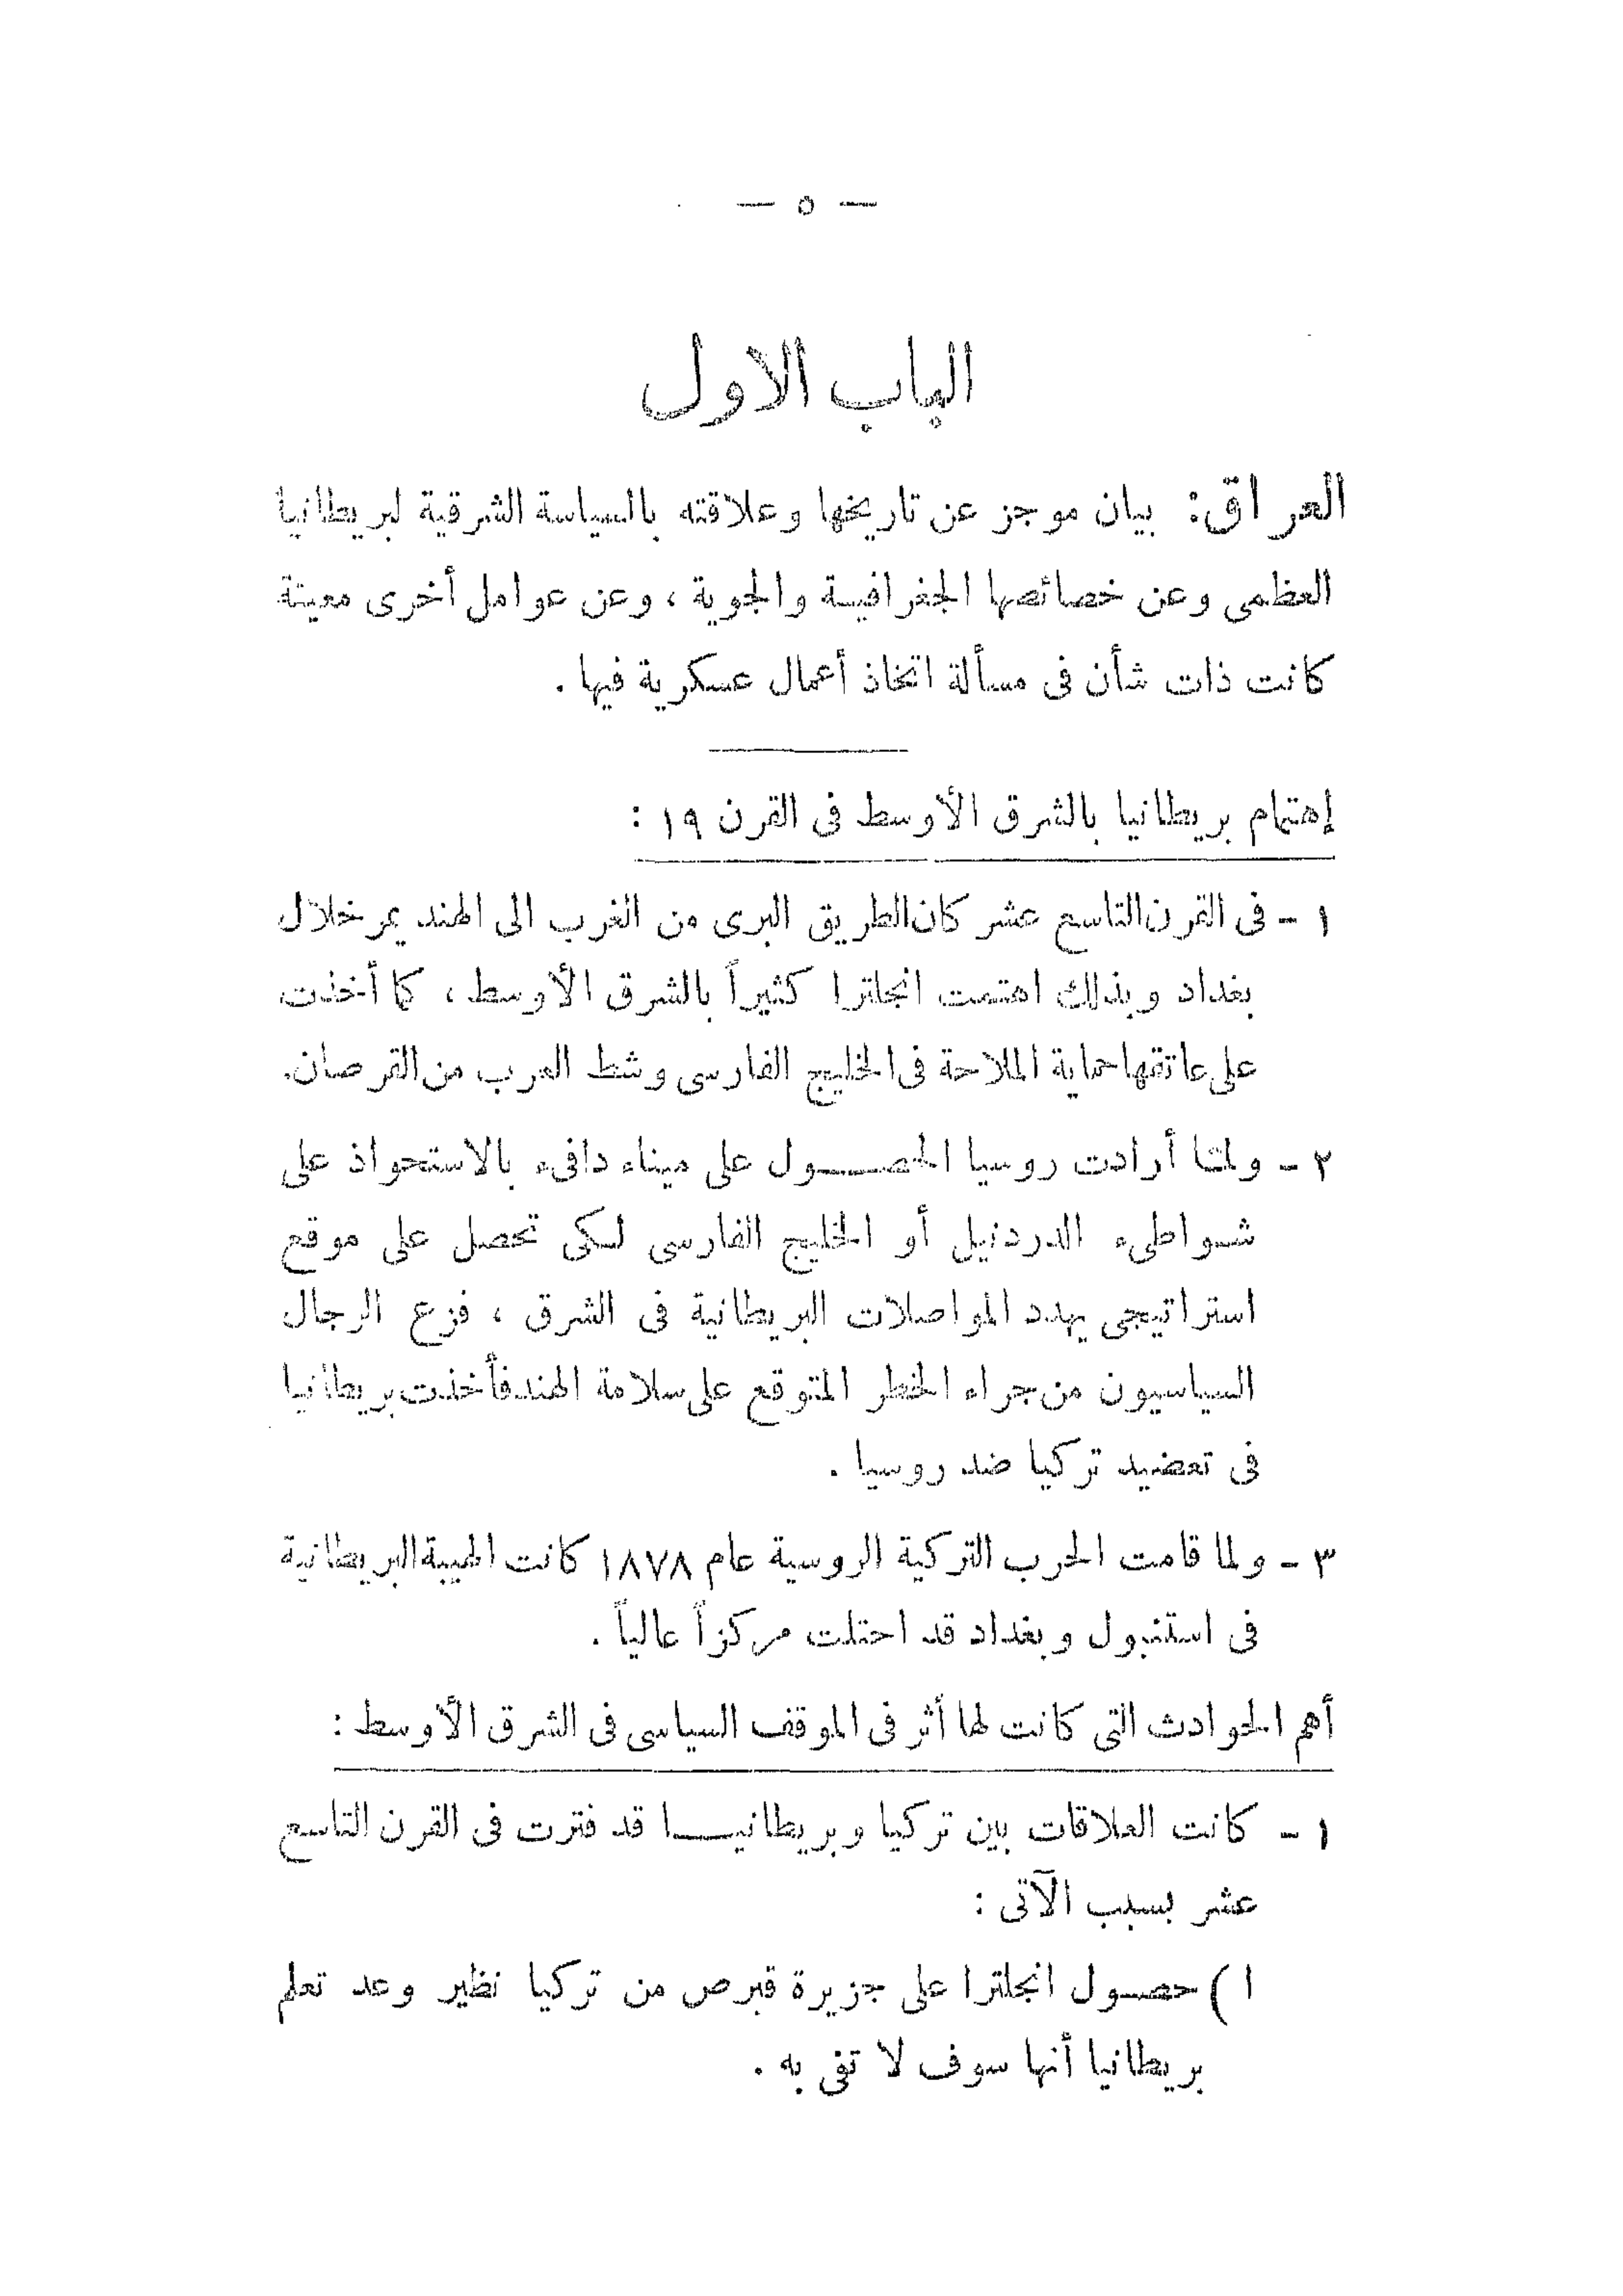 — ٥ —
الباب الاول
العراق: بيان موجز عن تاريخها وعلاقته بالسياسة الشرقية لبريطانيا
العظمى وعن خصائصها الجغرافيـة والجوية ، وعن عوامل أخرى معينة
كانت ذات شأن فى مسألة اتخاذ أعمال عسكرية فيها .
إهتمام بريطانيا بالشرق الأوسط فى القرن ١٩ :
١ – فى القرن التاسع عشر كان الطريق البرى من الغرب الى الهند يمر خلال
بغداد وبذلك اهتمت انجلترا كثيراً بالشرق الأوسط ، كما أخذت
على عاتقها حماية الملاحة فى الخليج الفارسى وشط العرب من القرصان.
٢ – ولمّا أرادت روسيا الحصــول على ميناء دافىء بالاستحواذ على
شـواطىء الدردنيل أو الخليج الفارسى لـكى تحصل على موقع
استراتيجى يهدد المواصلات البريطانية فى الشرق ، فزع الرجال
السياسيون من جراء الخطر المتوقع على سلامة الهند فأخذت بريطانيا
فى تعضيد تركيا ضد روسيا .
٣ – ولما قامت الحرب التركية الروسية عام ١٨٧٨ كانت الهيبة البريطانية
فى استنبول وبغداد قد احتلت مركزاً عالياً .
أهم الحوادث التى كانت لها أثر فى الموقف السياسى فى الشرق الأوسط :
١ – كانت العلاقات بين تركيا وبريطانيــا قد فترت فى القرن التاسع
عشر بسبب الآتى :
ا ) حصـول انجلترا على جزيرة قبرص من تركيا نظير وعد تعلم
بريطانيا أنها سوف لا تفى به .